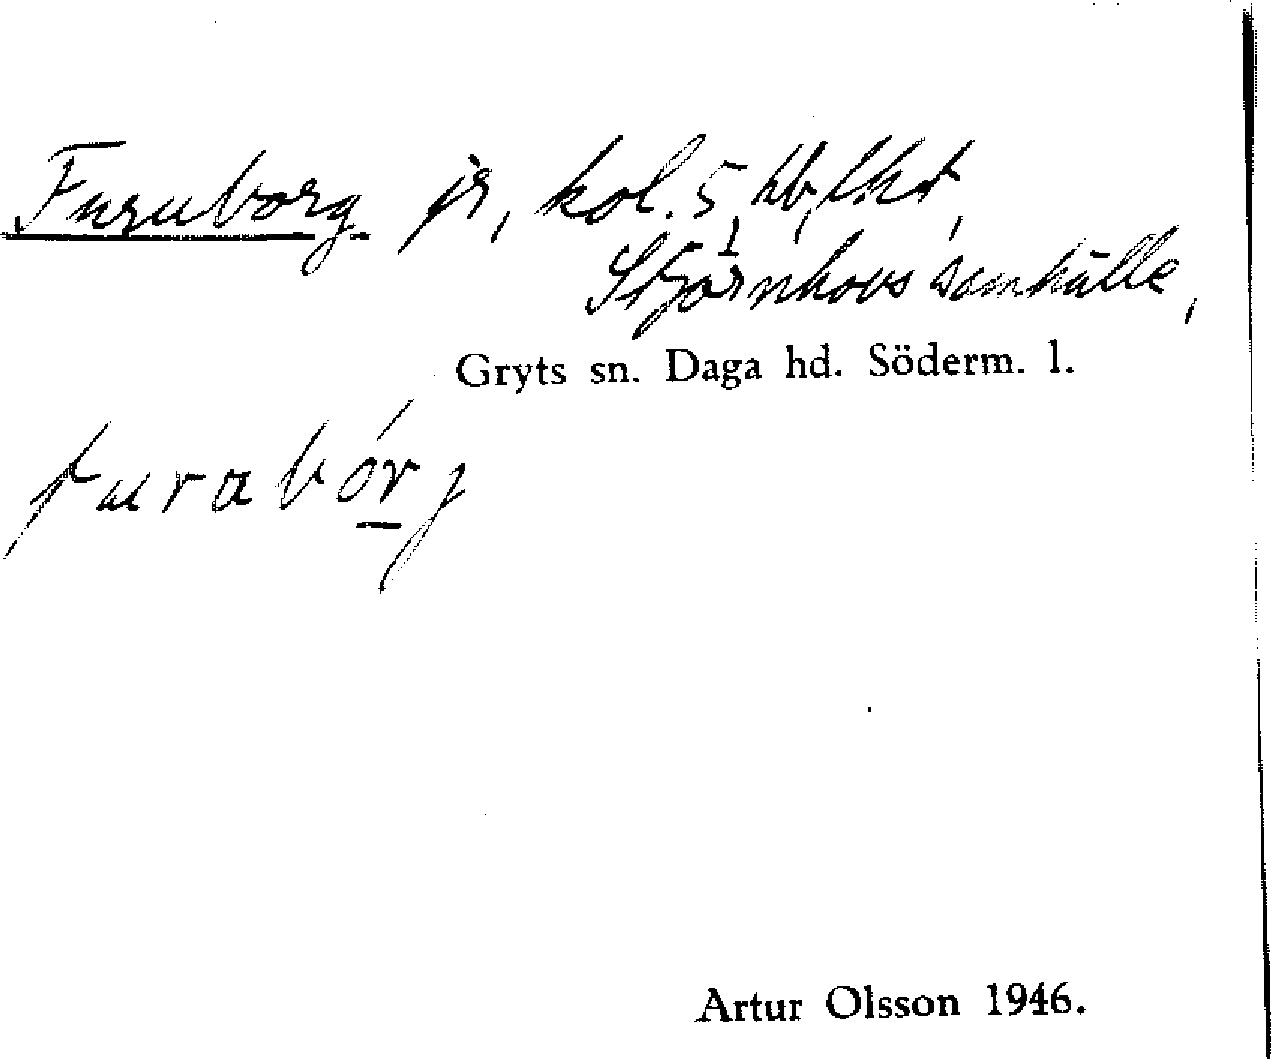 Furuborg jr, kol. 5, hb, lht,
Stjärnhovs samhälle,
Gryts sn. Daga hd. Söderm. l.
furabórj
Artur Olsson 1946.